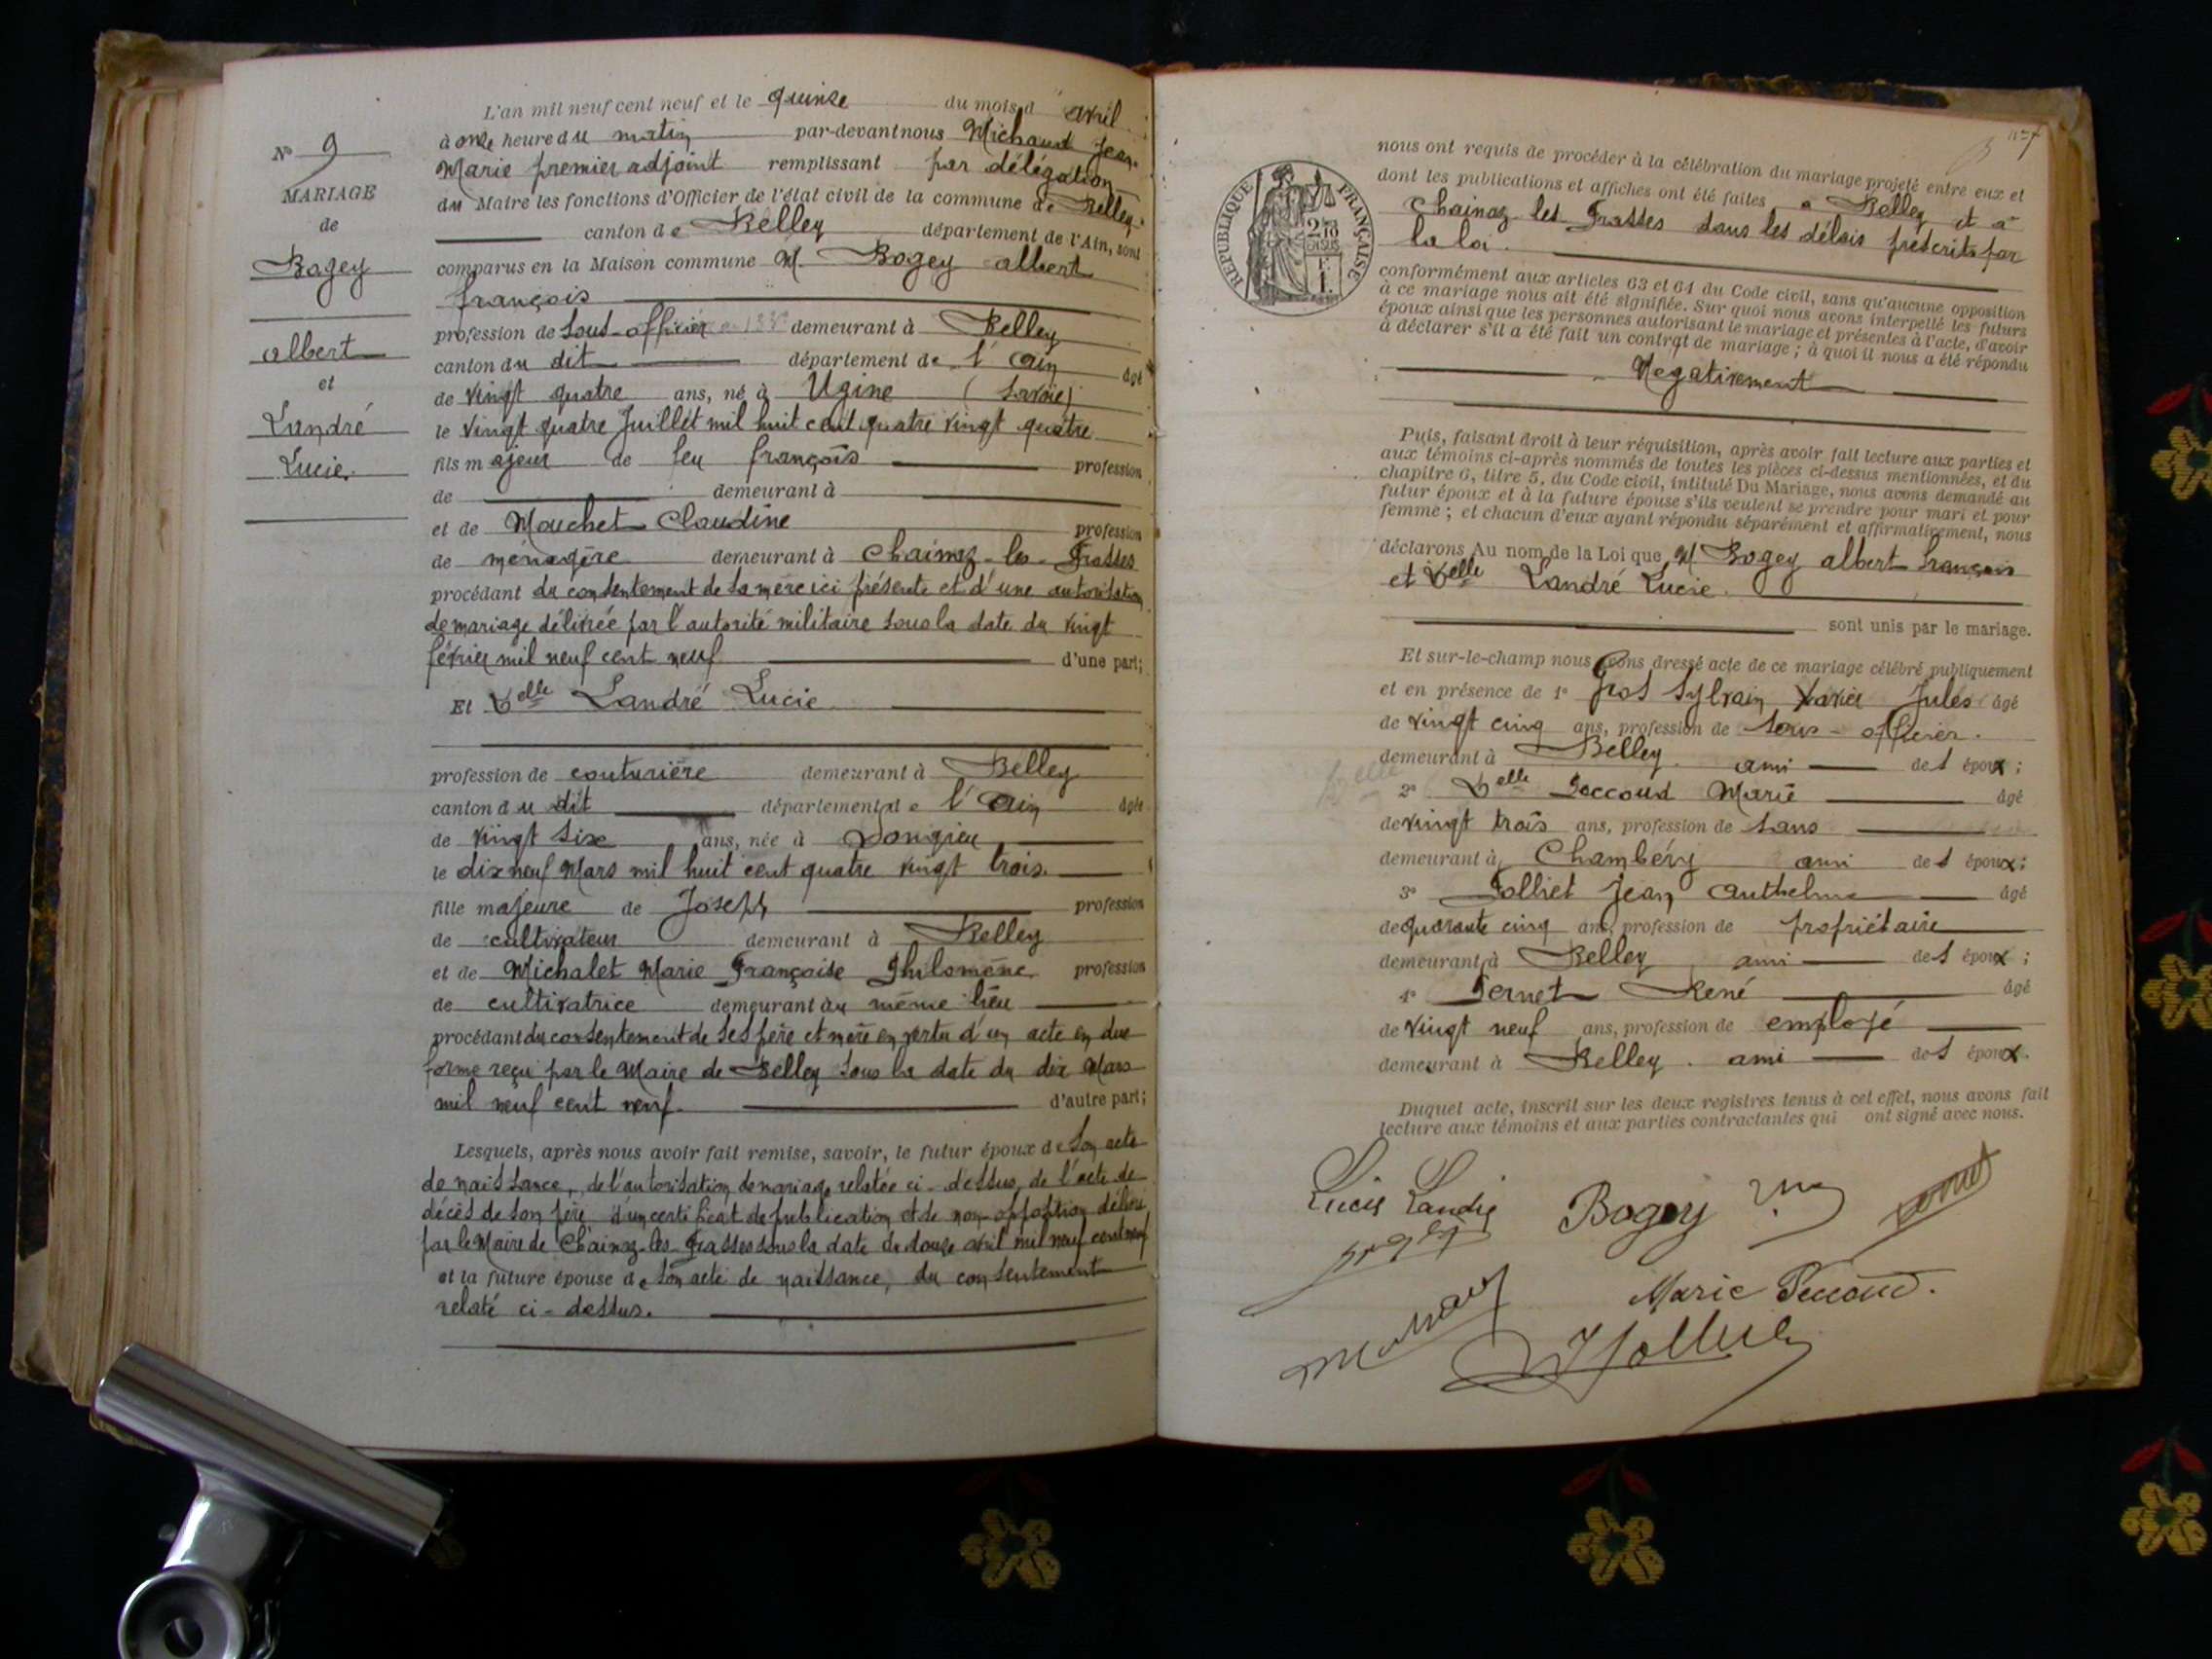 L'an mil neuf cent neuf et le quinze du mois d'avril
à onze heure du matin par-devant nous Michaud Jean-
Marie premier adjoint remplissant par délégation
du Maire les fonctions d'Officier de l'état civil de la commune de Belley
canton de Belley département de l'Ain, sont
comparus en la Maison commune M. Bogey albert
françois
profession de sous-officier demeurant à Belley
canton du dit département de l'ain âgé
de vingt quatre ans, né à Ugine (Savoie)
le vingt quatre Juillet mil huit cent quatre vingt quatre
fils majeur de feu françois profession
de demeurant à
et de Mouchet Claudine profession
de ménagère demeurant à Chainaz-les-Frasses
procédant du consentement de sa mère ici présente et d'une autorisation
de mariage délivrée par l'autorité militaire sous la date du vingt
février mil neuf cent neuf d'une part;
Et Delle Landré Lucie
profession de couturière demeurant à Belley
canton du dit département de l'Ain âgée
de vingt six ans, née à Songieu
le dix neuf Mars mil huit cent quatre vingt trois.
fille majeure de Joseph profession
de cultivateur demeurant à Belley
et de Michalet Marie Françoise Philomène profession
de cultivatrice demeurant au même lieu
procédant du consentement de ses père et mère en vertu d'un acte en due
forme reçu par le Maire de Belley sous la date du dix Mars
mil neuf cent neuf. d'autre part;
Lesquels, après nous avoir fait remise, savoir, le futur époux de son acte
de naissance, de l'autorisation de mariage relatée ci-dessus, de l'acte de
décès de son père d'un certificat de publication et de non-opposition délivré
par le Maire de Chainaz-les-Frasses sous la date du douze avril mil neuf cent neuf
et la future épouse de son acte de naissance, du consentement
relaté ci-dessus.
N° 9
MARIAGE
de
Bogey
albert
et
Landré
Lucie.
nous ont requis de procéder à la célébration du mariage projeté entre eux et
dont les publications et affiches ont été faites à Belley et à
Chainaz-les-Frasses dans les délais prescrits par
la loi.
RÉPUBLIQUE FRANÇAISE
2/10 EN SUS
conformément aux articles 63 et 64 du Code civil, sans qu'aucune opposition
à ce mariage nous ait été signifiée. Sur quoi nous avons interpellé les futurs
époux ainsi que les personnes autorisant le mariage et présentes à l'acte, d'avoir
à déclarer s'il a été fait un contrat de mariage; à quoi il nous a été répondu
Negativement
Puis, faisant droit à leur réquisition, après avoir fait lecture aux parties et
aux témoins ci-après nommés de toutes les pièces ci-dessus mentionnées, et du
chapitre 6, titre 5, du Code civil, intitulé Du Mariage, nous avons demandé au
futur époux et à la future épouse s'ils veulent se prendre pour mari et pour
femme; et chacun d'eux ayant répondu séparément et affirmativement, nous
déclarons Au nom de la Loi que M. Bogey albert françois
et Delle Landré Lucie.
sont unis par le mariage.
Et sur-le-champ nous avons dressé acte de ce mariage célébré publiquement
et en présence de 1° Gros Sylvain Xavier Jules âgé
de vingt cinq ans, profession de sous-officier.
demeurant à Belley. ami des époux;
2° Delle Soccoud Marie âgé
de vingt trois ans, profession de sans
demeurant à Chambéry ami des époux;
3° Jolliet Jean Anthelme âgé
de quarante cinq ans, profession de propriétaire
demeurant à Belley ami des époux;
4° Pernet René âgé
de vingt neuf ans, profession de employé
demeurant à Belley. ami des époux.
Duquel acte, inscrit sur les deux registres tenus à cet effet, nous avons fait
lecture aux témoins et aux parties contractantes qui ont signé avec nous.
Lucie Landré Bogey
Marie